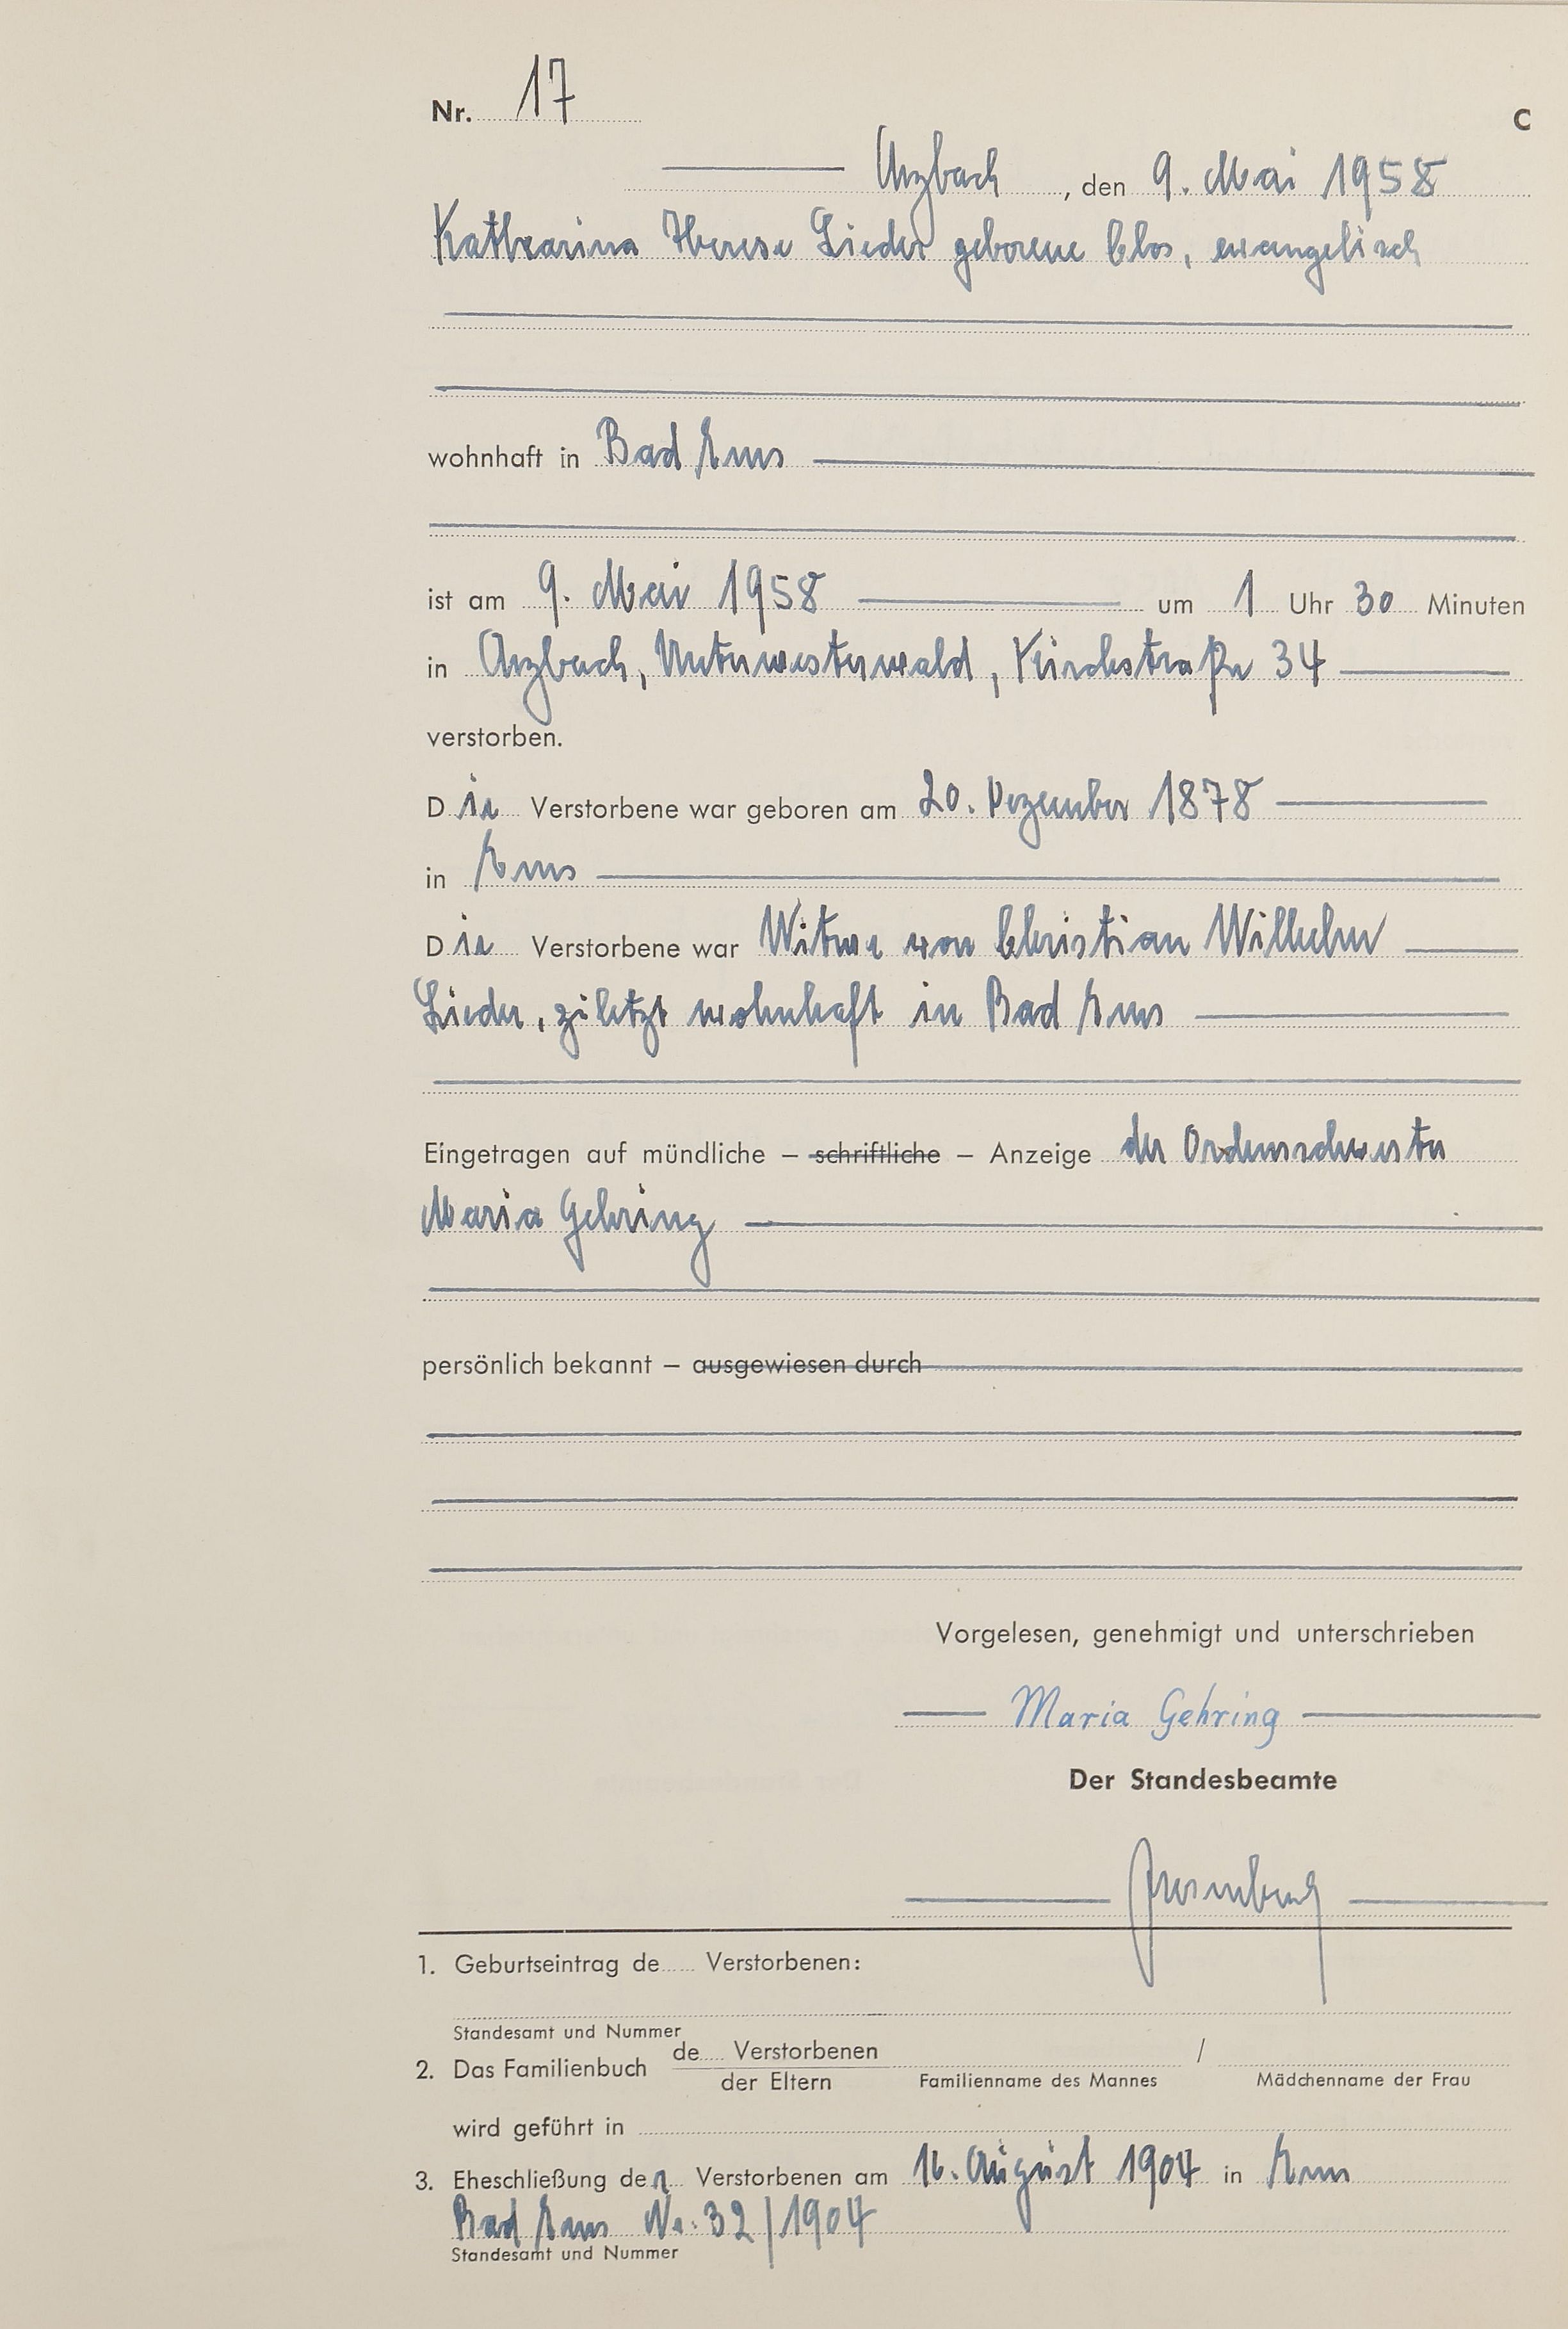 Nr. 17
C
Arzbach, den 9. Mai 1958
Katharina Therese Lieder geborene Clos, evangelisch
wohnhaft in Bad Ems
ist am 9. Mai 1958 um 1 Uhr 30 Minuten
in Arzbach, Unterwesterwald, Kirchstraße 34
verstorben.
Die Verstorbene war geboren am 20. Dezember 1878
in Ems
Die Verstorbene war Witwe von Christian Wilhelm
Lieder, zuletzt wohnhaft in Bad Ems
Eingetragen auf mündliche – schriftliche – Anzeige der Ordensschwester
Maria Gehring
persönlich bekannt – ausgewiesen durch
Vorgelesen, genehmigt und unterschrieben
Maria Gehring
Der Standesbeamte
1. Geburtseintrag de Verstorbenen:
Standesamt und Nummer
2. Das Familienbuch de Verstorbenen /
der Eltern Familienname des Mannes Mädchenname der Frau
wird geführt in
3. Eheschließung der Verstorbenen am 16. August 1904 in Ems
Bad Ems Nr. 32/1904
Standesamt und Nummer